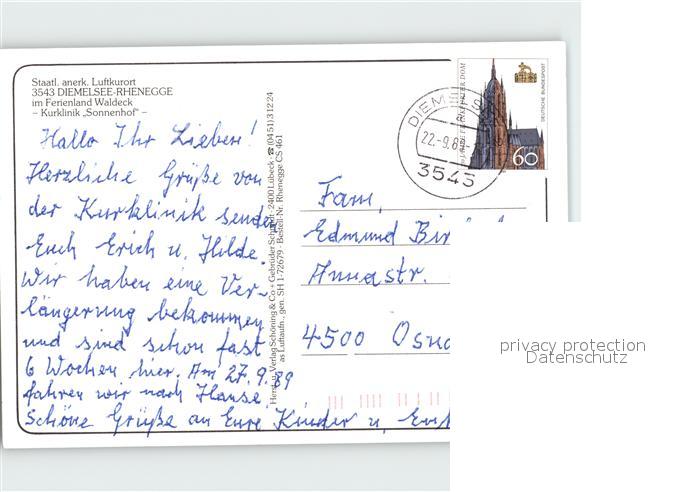 Staatl. anerk. Luftkurort
3543 DIEMELSEE-RHENEGGE
im Ferienland Waldeck
– Kurklinik „Sonnenhof“ –
Hallo Ihr Lieben!
Herzliche Grüße von
der Kurklinik senden
Euch Erich u. Hilde.
Wir haben eine Ver-
längerung bekommen
und sind schon fast
6 Wochen hier. Am 27.9.89
fahren wir nach Hause
Schöne Grüße an Eure Kinder u,
Herst. u. Verlag Schöning & Co + Gebrüder Schmidt · 2400 Lübeck · ☎ (0451) 31224
as Luftaufn., gen. SH 1-72679 · Bestell-Nr. Rhenegge CS 461
22.-9.8
3543
DEUTSCHE BUNDESPOST
60
Fam,
Edmund
Annastr.
4500
privacy protection
Datenschutz